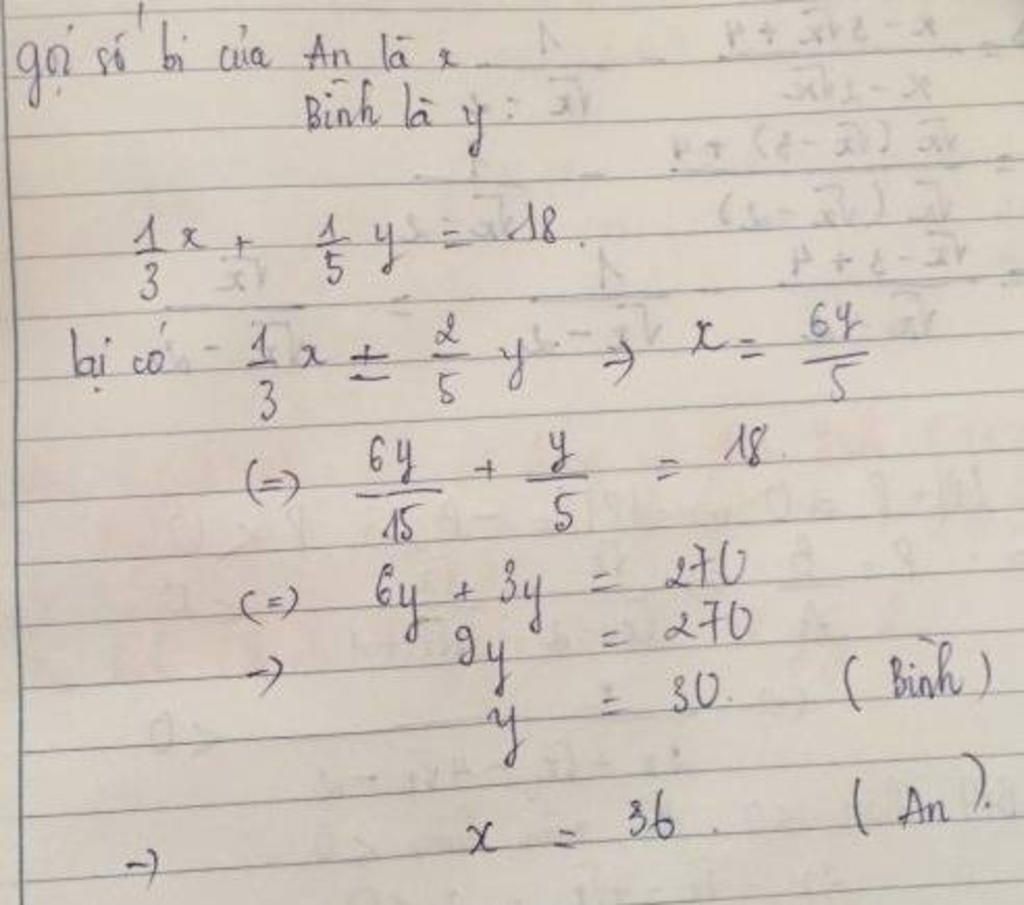 gọi số bi của An là x
Bình là y :
1/3 x + 1/5 y = 18.
lại có 1/3 x = 2/5 y → x = 6y/5
(=) 6y/15 + y/5 = 18.
(=) 6y + 3y = 270
→ 9y = 270
y = 30. (Bình)
→ x = 36. (An).